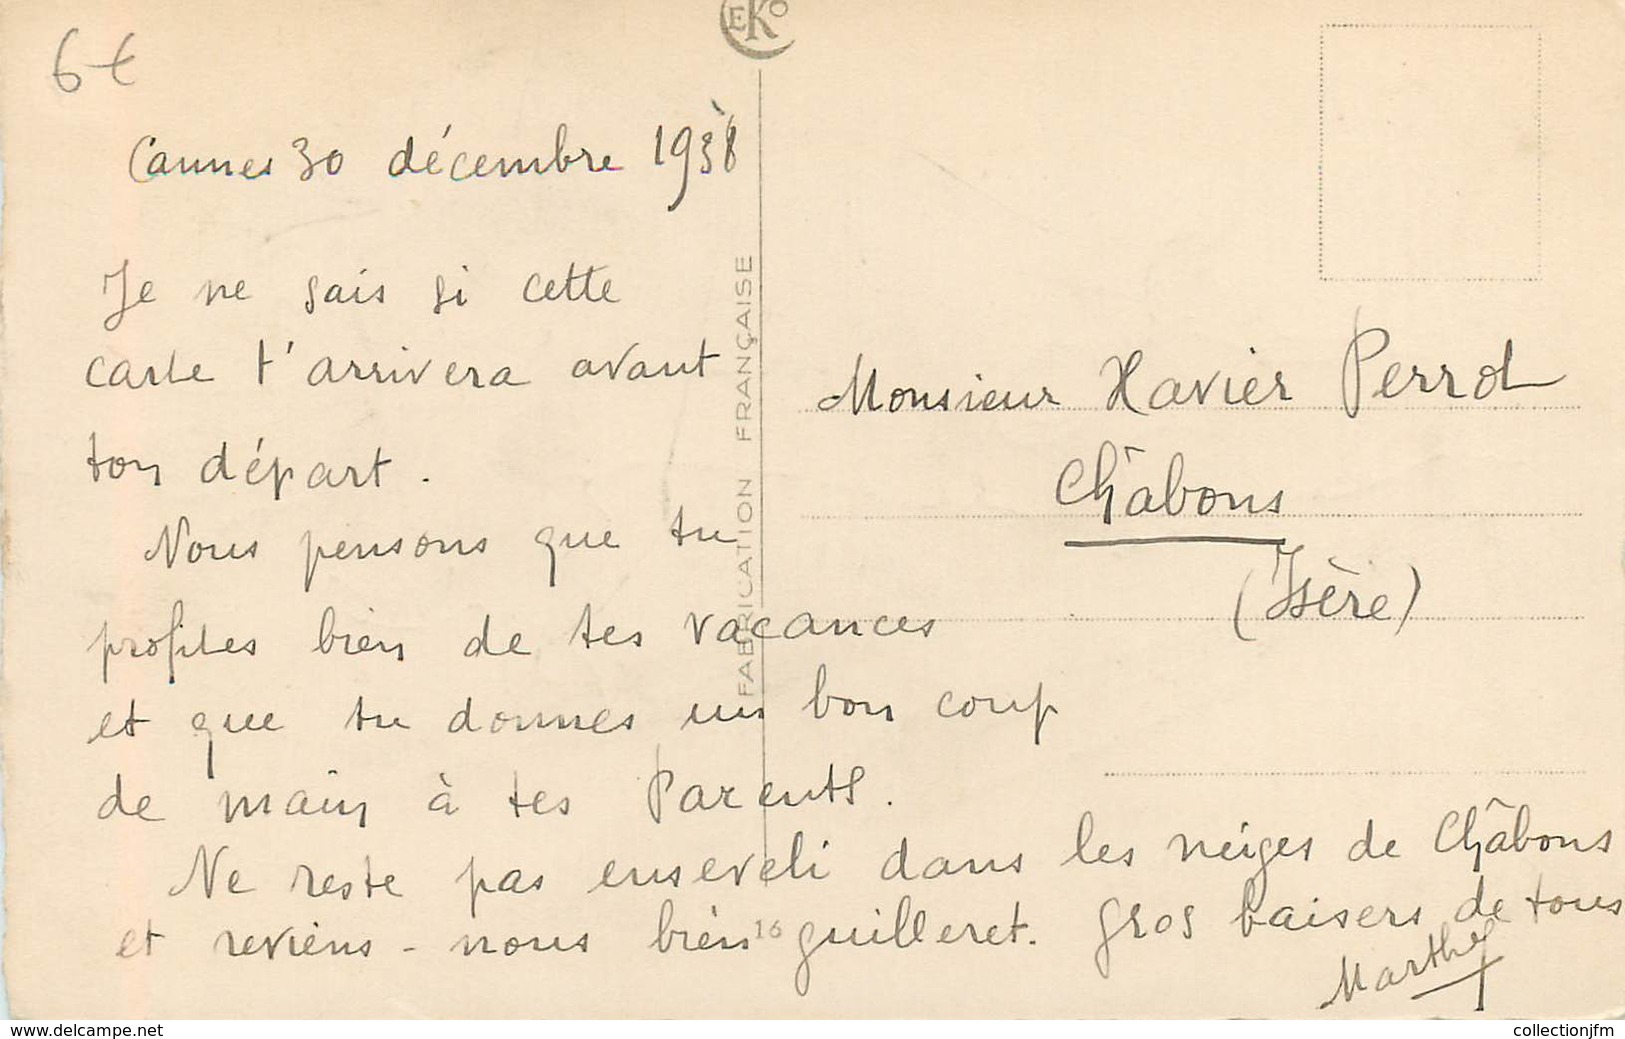 6€
EKO
Cannes 30 décembre 1938
Je ne sais si cette
carte t'arrivera avant
ton départ.
Nous pensons que tu
profites bien de tes vacances
et que tu donnes un bon coup
de main à tes Parents.
Ne reste pas enseveli dans les neiges de Châbons
et reviens-nous bien guilleret. Gros baisers de tous
Marthe
16
FABRICATION FRANÇAISE
Monsieur Xavier Perrot
Châbons
(Isère)
www.delcampe.net
collectionjfm